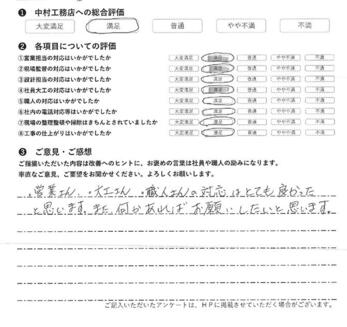 ❶ 中村工務店への総合評価
大変満足 満足 普通 やや不満 不満
❷ 各項目についての評価
①営業担当の対応はいかがでしたか 大変満足 満足 普通 やや不満 不満
②現場監督の対応はいかがでしたか 大変満足 満足 普通 やや不満 不満
③設計担当の対応はいかがでしたか 大変満足 満足 普通 やや不満 不満
④社員大工の対応はいかがでしたか 大変満足 満足 普通 やや不満 不満
⑤職人の対応はいかがでしたか 大変満足 満足 普通 やや不満 不満
⑥社内の電話対応等はいかがでしたか 大変満足 満足 普通 やや不満 不満
⑦現場の整理整頓や掃除はきちんとされていましたか 大変満足 満足 普通 やや不満 不満
⑧工事の仕上がりはいかがでしたか 大変満足 満足 普通 やや不満 不満
❸ ご意見・ご感想
ご指摘いただいた内容は改善へのヒントに、お褒めの言葉は社員や職人の励みになります。
率直なご意見、ご要望をお聞かせください。よろしくお願いします。
営業さん、・大工さん・職人さんの対応はとても良かった
と思います。また何かあればお願いしたいと思います。
ご記入いただいたアンケートは、HPに掲載させていただく場合がございます。